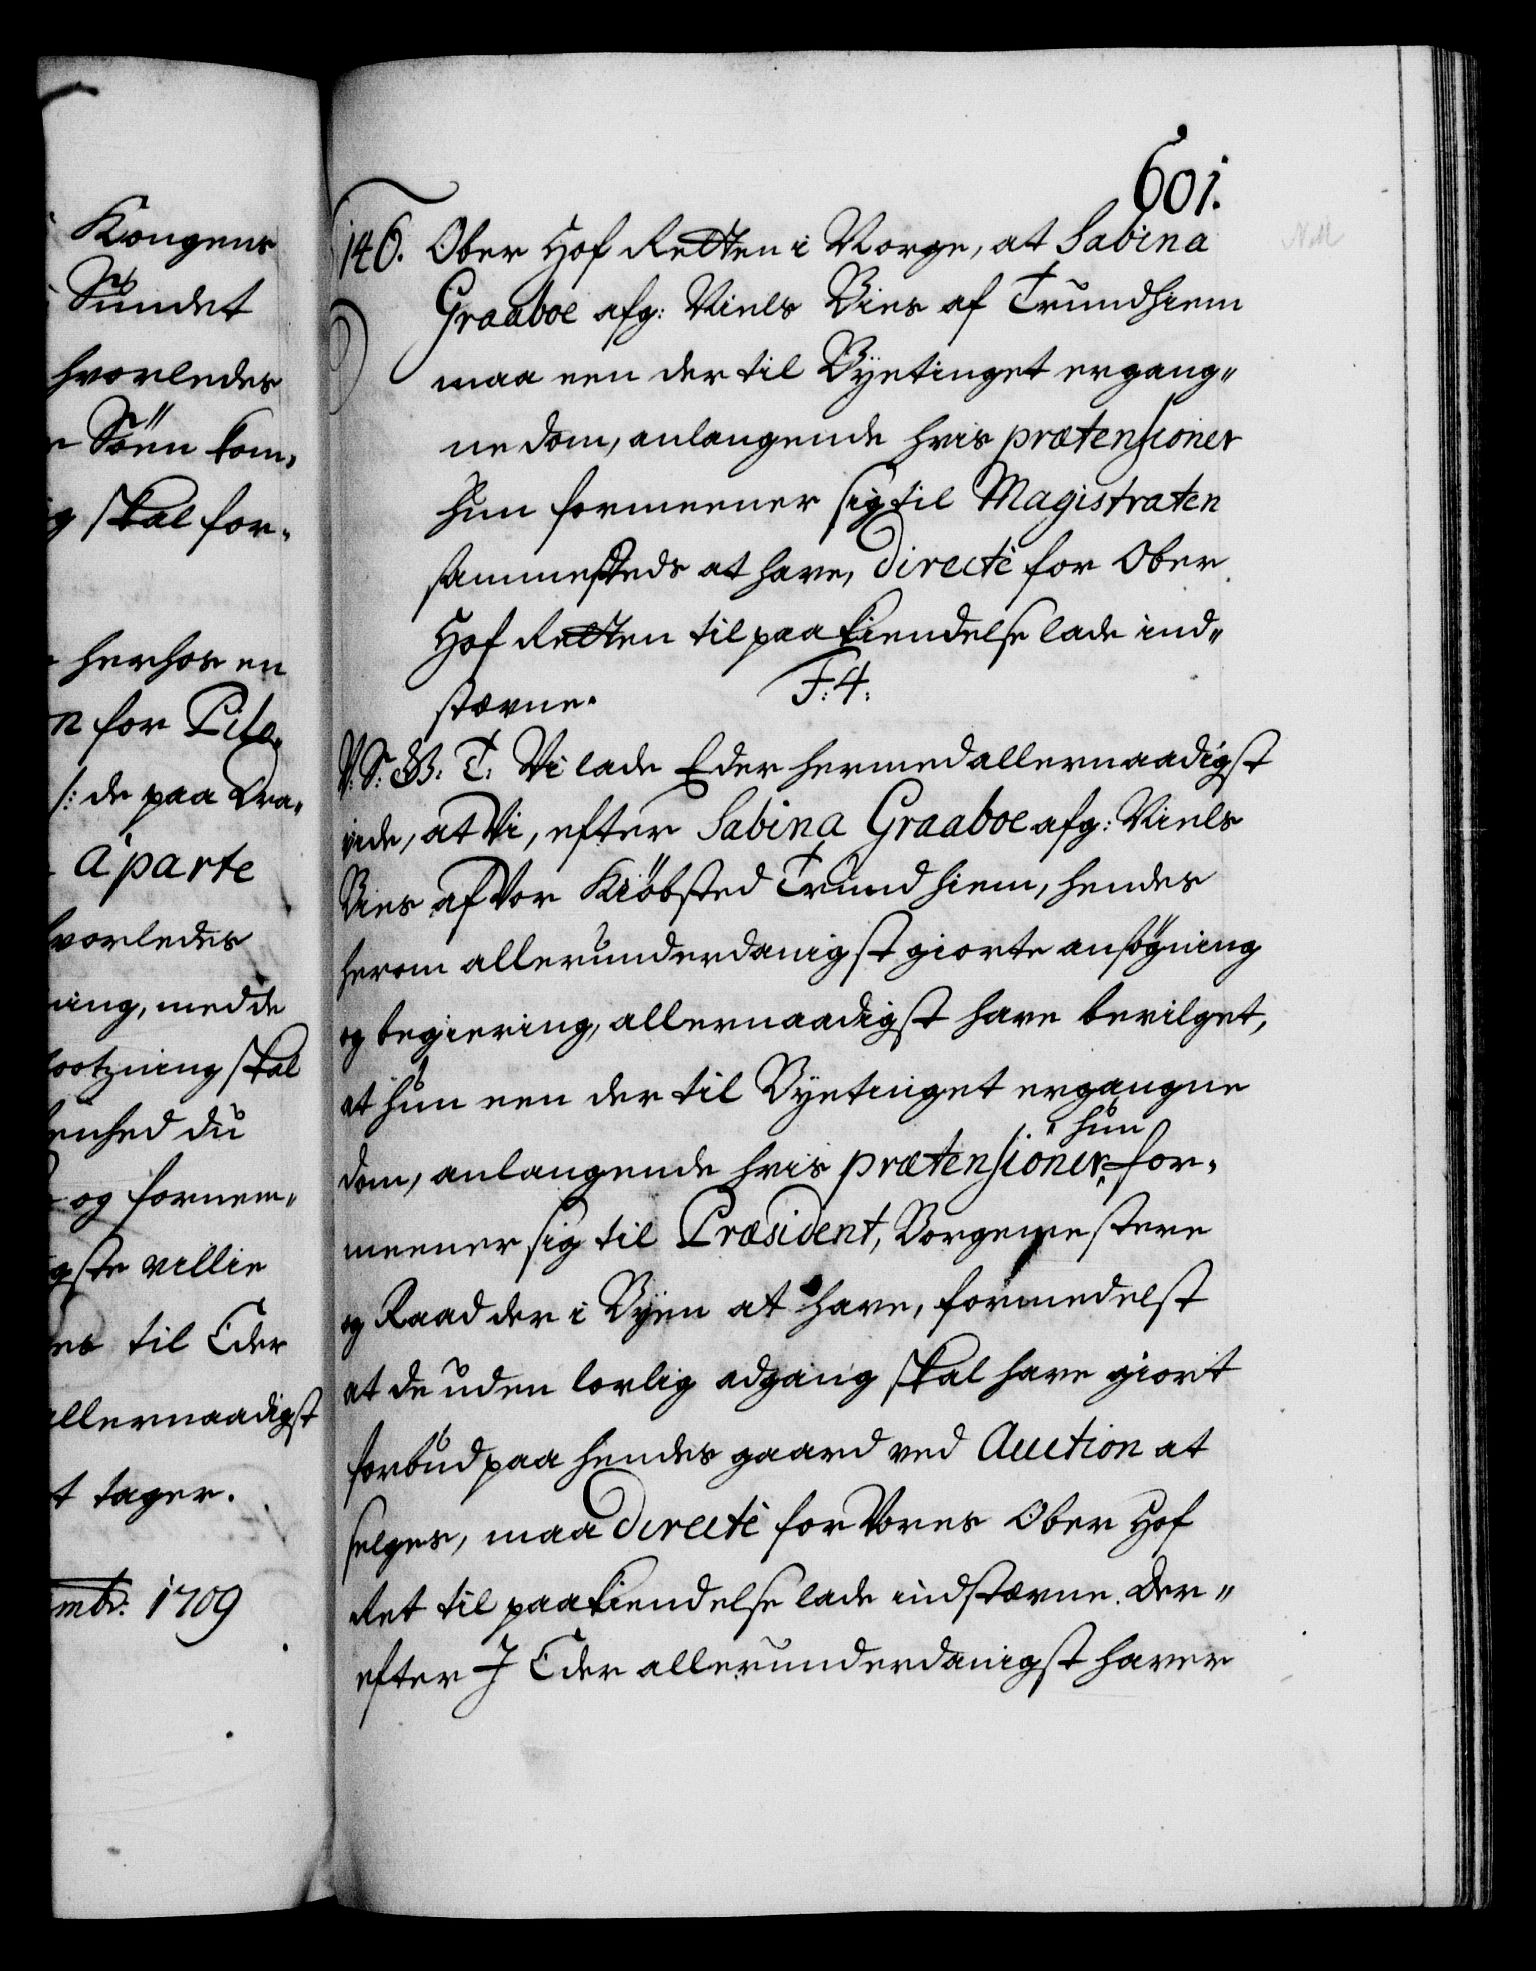 Kongens
Sundet
hvorledes
Söen kom,
skal for,
herhos en
for Pile,
/: de paa Dra,
à parte
hvorledes
ning, med de
skal
enhed du
og fornem,,
gste villie
til Eder
allernaadigst
t tager.
mbr. 1709
601.
146. Ober Hof Retten i Norge, at Sabina
Graaboe afg: Niels Bies af Trundhiem
maa een der til Byetinget ergang,,
ne dom, anlangende hvis prætensioner
hun formeener sig til Magistraten
sammesteds at have, directè for Ober
Hof Retten til paakiendelse lade ind,,
stævne.
F: 4:
V. S. G. T. Vi lade Eder hermed allernaadigst
vide, at Vi, efter Sabina Graaboe afg: Niels
Bies af Vor Kiöbsted Trundhiem, hendes
herom allerunderdanigst giorte ansögning
og begiering, allernaadigst have bevilget,
at hun een der til Byetinget ergangne
dom, anlangende hvis prætensioner hun for,
meener sig til Præsident, Borgemestere
og Raad der i Byen at have, formedelst
at de uden lovlig adgang skal have giort
forbud paa hendes gaard ved Auction at
selges, maa directè for Vores Ober Hof
Ret til paakiendelse lade indstævne. Der,,
efter I Eder allerunderdanigst haver